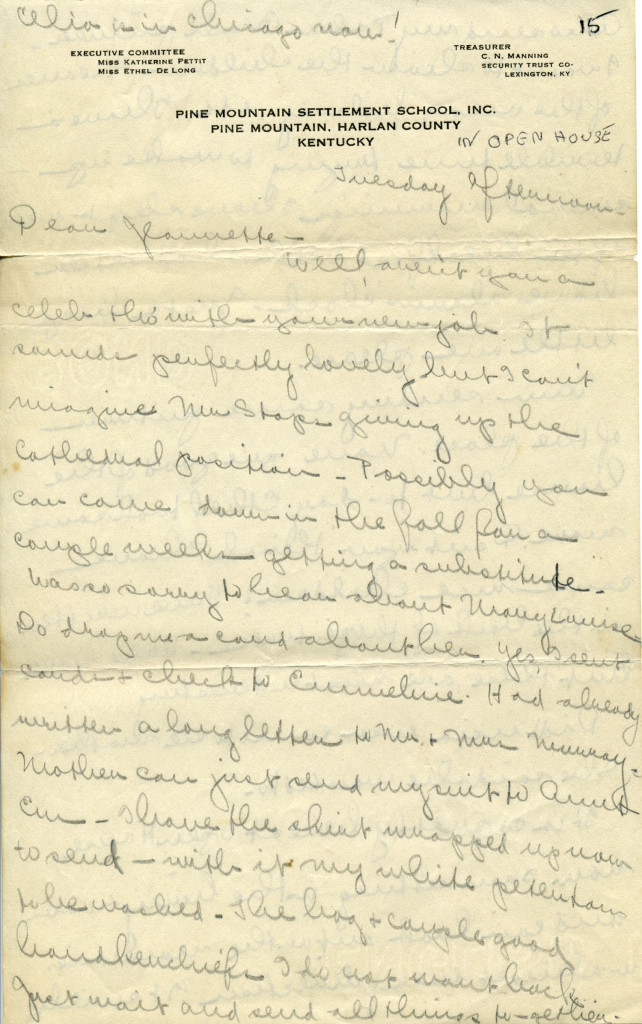 Celia is in Chicago now!
15
EXECUTIVE COMMITTEE
MISS KATHERINE PETTIT
MISS ETHEL DE LONG
TREASURER
C. N. MANNING
SECURITY TRUST CO-
LEXINGTON, KY
PINE MOUNTAIN SETTLEMENT SCHOOL, INC.
PINE MOUNTAIN, HARLAN COUNTY
KENTUCKY
IN OPEN HOUSE
Tuesday Afternoon-
Dear Jeannette-
Well, aren't you a
celeb tho with your new job. It
sounds perfectly lovely but I can't
imagine Mr. giving up the
Cathedral position - Possibly you
can come down in the fall for a
couple weeks getting a substitute-
Was so sorry to hear about Mary Louise
Do drop me a card about her. Yes, I sent
cards + check to Emmeline. Had already
written a long letter to Mr. + Mrs Murray-
Mother can just send my suit to Aunt
Em - I have the skirt wrapped up now
to send - with it my white
to be washed - The bag + couple good
handkerchiefs I do not want back.
Just wait and send all things to-gether.